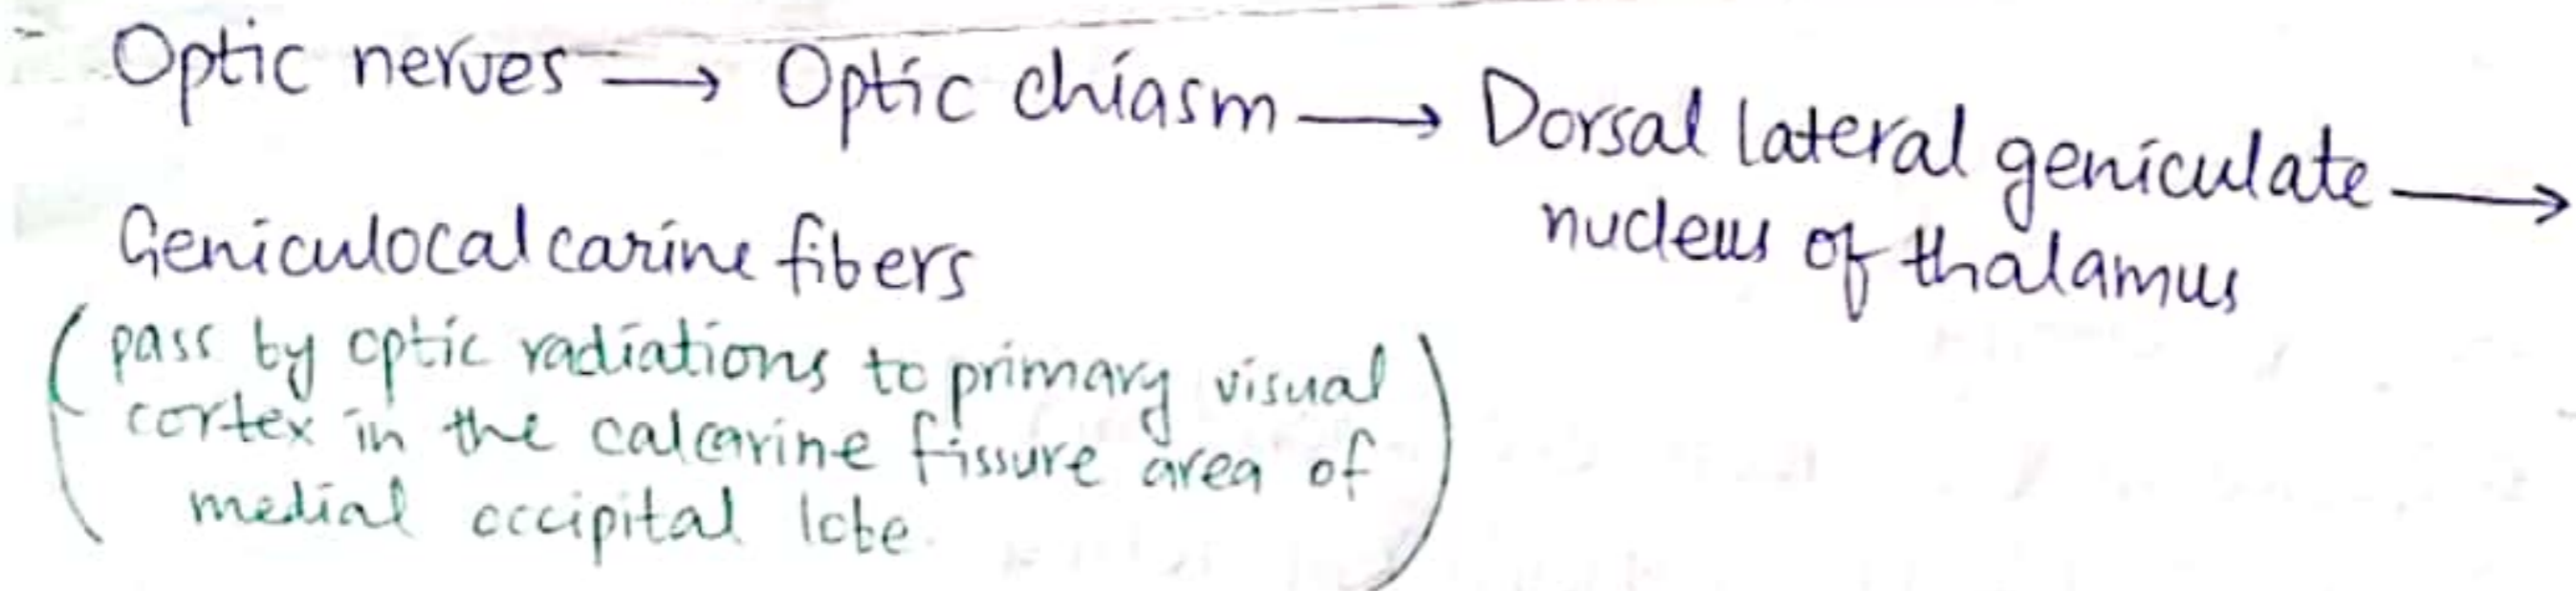 - Optic nerves → Optic chiasm → Dorsal lateral geniculate →
nucleus of thalamus
Geniculocalcarine fibers
(pass by optic radiations to primary visual
cortex in the calcarine fissure area of
medial occipital lobe.)